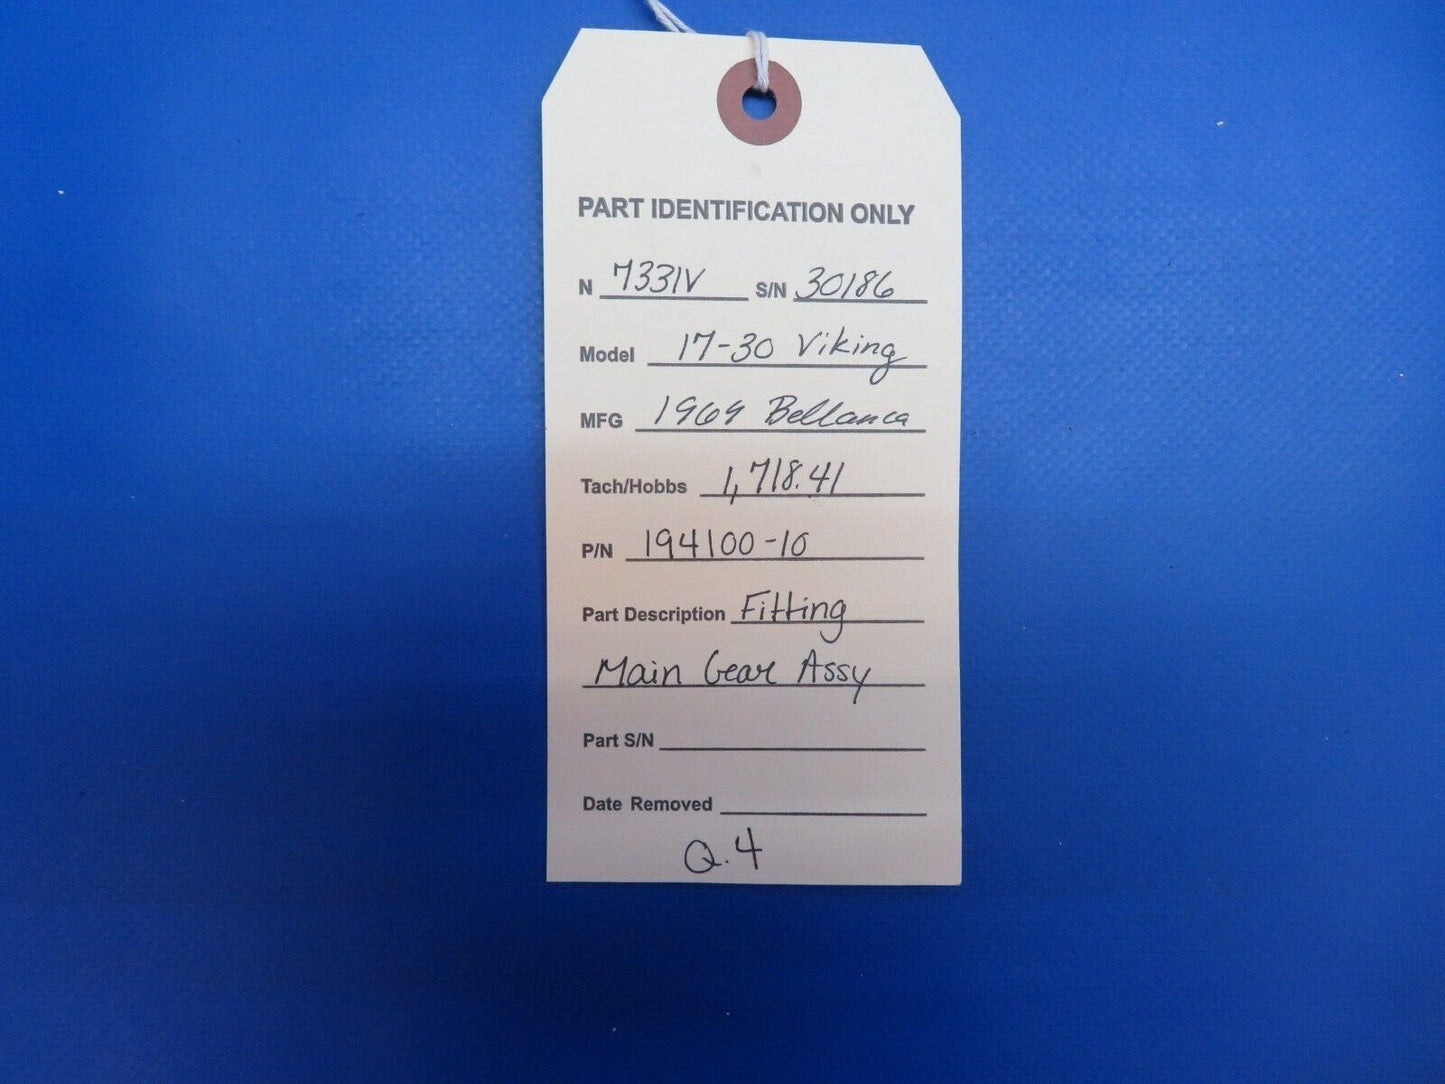 PART IDENTIFICATION ONLY
N 7331V S/N 30186
Model 17-30 Viking
MFG 1969 Bellanca
Tach/Hobbs 1,718.41
P/N 194100-10
Part Description Fitting
Main Gear Assy
Part S/N
Date Removed
Q.4